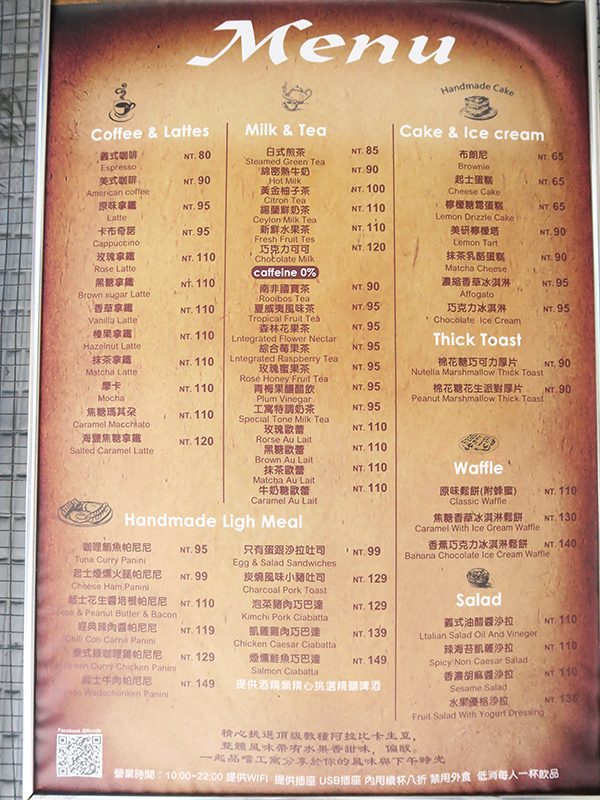 Menu
Coffee & Lattes
義式咖啡 NT. 80
Espresso
美式咖啡 NT. 90
American coffee
原味拿鐵 NT. 95
Latte
卡布奇諾 NT. 95
Cappuccino
玫瑰拿鐵 NT. 110
Rose Latte
黑糖拿鐵 NT. 110
Brown sugar Latte
香草拿鐵 NT. 110
Vanilla Latte
榛果拿鐵 NT. 110
Hazelnut Latte
抹茶拿鐵 NT. 110
Matcha Latte
摩卡 NT. 110
Mocha
焦糖瑪其朵 NT. 110
Caramel Macchiato
海鹽焦糖拿鐵 NT. 120
Salted Caramel Latte
Milk & Tea
日式煎茶 NT. 85
Steamed Green Tea
綿密熱牛奶 NT. 90
Hot Milk
黃金柚子茶 NT. 100
Citron Tea
錫蘭鮮奶茶 NT. 110
Ceylon Milk Tea
新鮮水果茶 NT. 110
Fresh Fruit Tes
巧克力可可 NT. 120
Chocolate Milk
caffeine 0%
南非國寶茶 NT. 90
Rooibos Tea
夏威夷風味茶 NT. 95
Tropical Fruit Tea
森林花果茶 NT. 95
Lntegrated Flower Nectar
綜合莓果茶 NT. 95
Lntegrated Raspberry Tea
玫瑰蜜果茶 NT. 95
Rose Honey Fruit Tea
青梅果釀醋飲 NT. 95
Plum Vinegar
工寓特調奶茶 NT. 95
Special Tone Milk Tea
玫瑰歐蕾 NT. 110
Rorse Au Lait
黑糖歐蕾 NT. 110
Brown Au Lait
抹茶歐蕾 NT. 110
Matcha Au Lait
牛奶糖歐蕾 NT. 110
Caramel Au Lait
Handmade Cake
Cake & Ice cream
布朗尼 NT. 65
Brownie
起士蛋糕 NT. 65
Cheese Cake
檸檬糖霜蛋糕 NT. 65
Lemon Drizzle Cake
美研檸檬塔 NT. 90
Lemon Tart
抹茶乳酪蛋糕 NT. 90
Matcha Cheese
濃縮香草冰淇淋 NT. 95
Affogato
巧克力冰淇淋 NT. 95
Chocolate Ice Cream
Thick Toast
棉花糖巧可力厚片 NT. 90
Nutella Marshmallow Thick Toast
棉花糖花生派對厚片 NT. 90
Peanut Marshmallow Thick Toast
Waffle
原味鬆餅(附蜂蜜) NT. 110
Classic Waffle
焦糖香草冰淇淋鬆餅 NT. 130
Caramel With Ice Cream Waffle
香蕉巧克力冰淇淋鬆餅 NT. 140
Banana Chocolate Ice Cream Waffle
Salad
義式油醋醬沙拉 NT. 110
Ltalian Salad Oil And Vineger
辣海苔凱薩沙拉 NT. 110
Spicy Nori Caesar Salad
香濃胡麻醬沙拉 NT. 110
Sesame Salad
水果優格沙拉 NT. 135
Fruit Salad With Yogurt Dressing
Handmade Ligh Meal
咖哩鮪魚帕尼尼 NT. 95
Tuna Curry Panini
起士煙燻火腿帕尼尼 NT. 99
Cheese Ham Panini
起士花生醬培根帕尼尼 NT. 110
& Peanut Butter & Bacon
經典辣肉醬帕尼尼 NT. 119
Chili Con Carne Panini
泰式綠咖哩雞帕尼尼 NT. 129
Green Curry Chicken Panini
起士牛肉帕尼尼 NT. 149
Wadschinken Panini
只有蛋跟沙拉吐司 NT. 99
Egg & Salad Sandwiches
炭燒風味小豬吐司 NT. 129
Charcoal Pork Toast
泡菜豬肉巧巴達 NT. 129
Kimchi Pork Ciabatta
凱薩雞肉巧巴達 NT. 139
Chicken Caesar Ciabatta
煙燻鮭魚巧巴達 NT. 149
Salmon Ciabatta
提供酒精類精心挑選精釀啤酒
Facebook QRcode
精心挑選頂級數種阿拉比卡生豆,
整體風味帶有水果香甜味, 偏酸。
一起品嚐工寓分享於你的悠閒時光與下午時光
營業時間：10:00~22:00 提供WIFI 提供插座 USB插座 內用續杯八折 禁用外食 低消每人一杯飲品